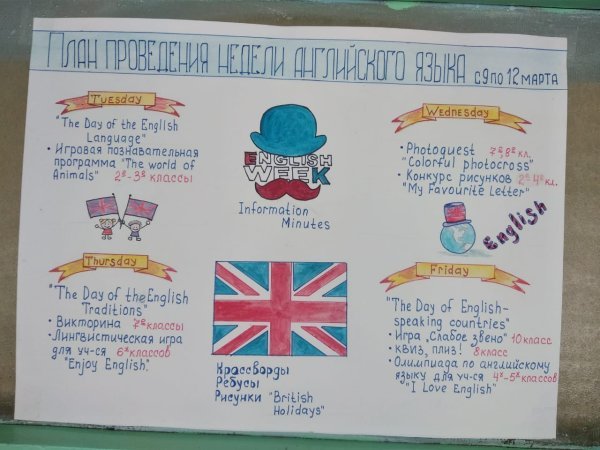 План проведения недели английского языка с 9 по 12 марта
Tuesday
"The Day of the English
Language"
• Игровая познавательная
программа "The world of
Animals" 2ᵉ-3ᵉ классы
ENGLISH
WEEK
Information
Minutes
Wednesday
• Photoquest 7ᵉ,8ᵉ кл.
"Colorful photocross"
• Конкурс рисунков 2ᵉ-4ᵉ кл.
"My Favourite Letter"
English
Thursday
"The Day of the English
Traditions"
• Викторина 7ᵉ классы
• Лингвистическая игра
для уч-ся 6ˣ классов
"Enjoy English".
Кроссворды
Ребусы
Рисунки "British
Holidays"
Friday
"The Day of English-
speaking countries"
• Игра „Слабое звено" 10 класс
• КВИЗ, ПЛИЗ! 8 класс
• Олимпиада по английскому
языку для уч-ся 4ˣ-5ˣ классов
"I Love English"